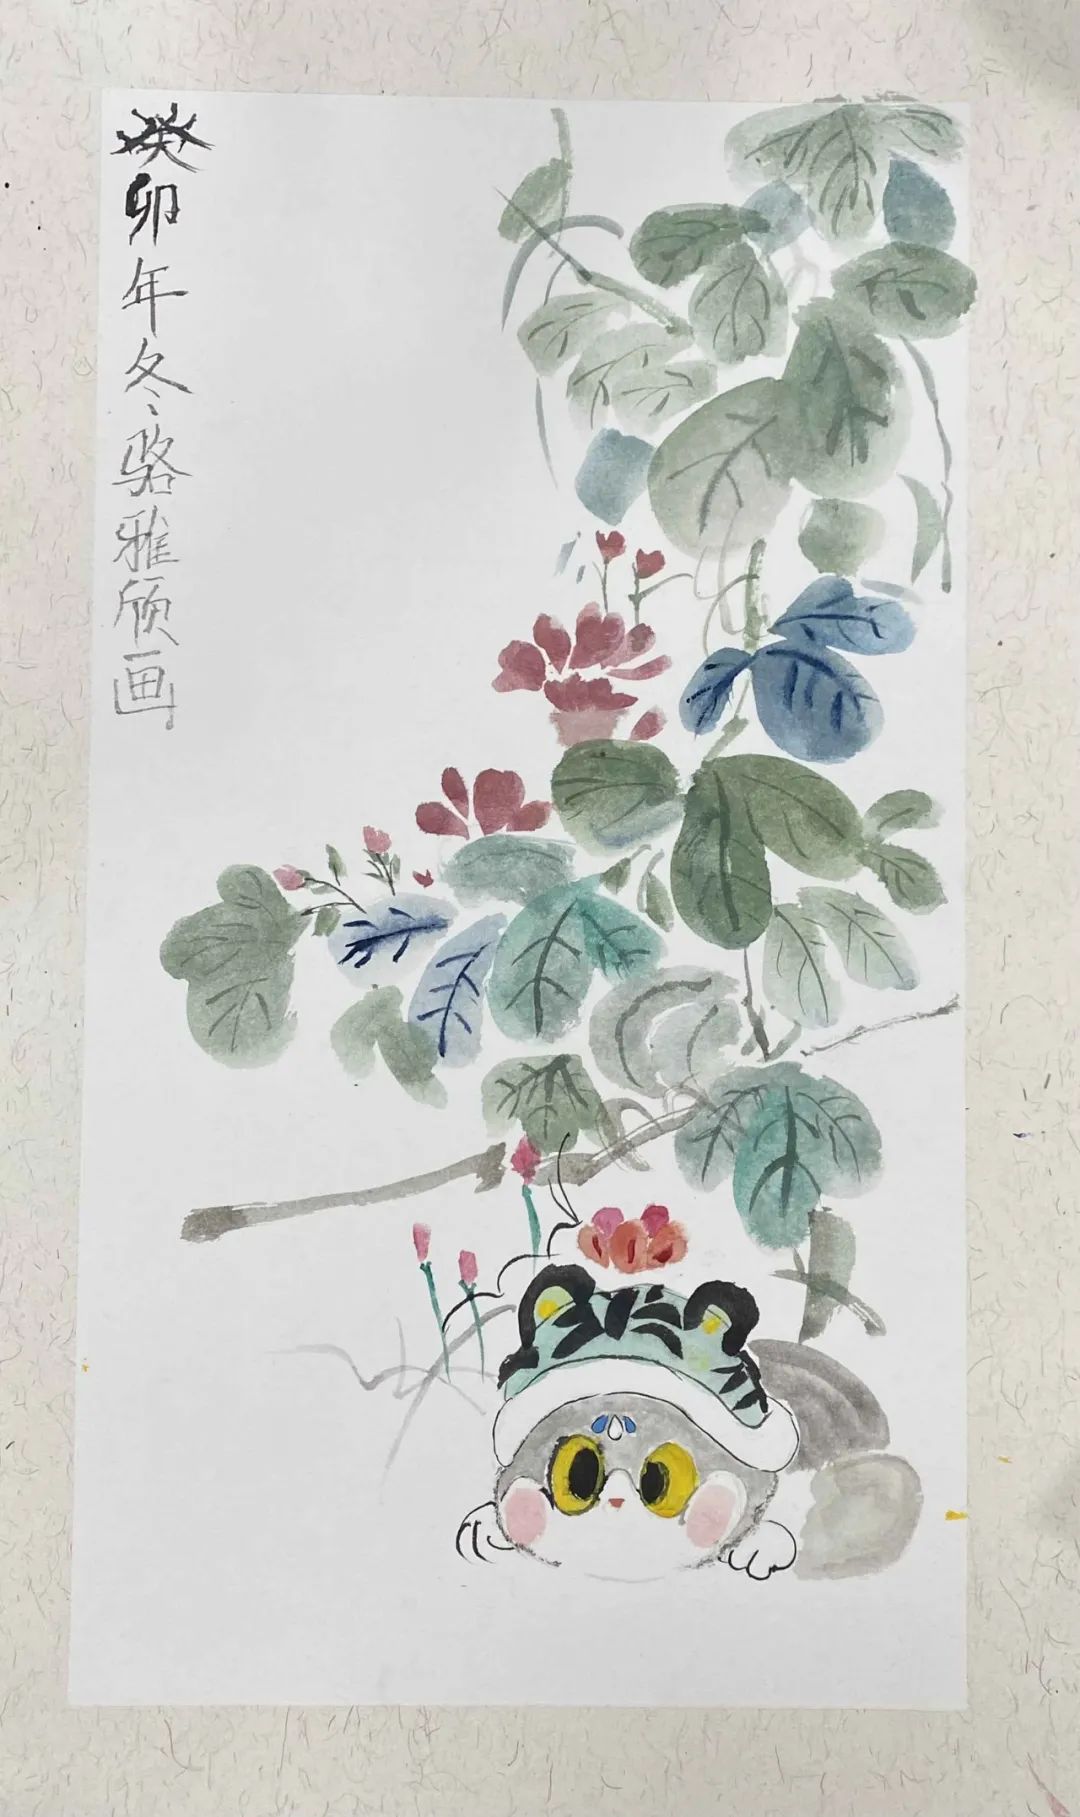 癸卯年冬骆雅颀画